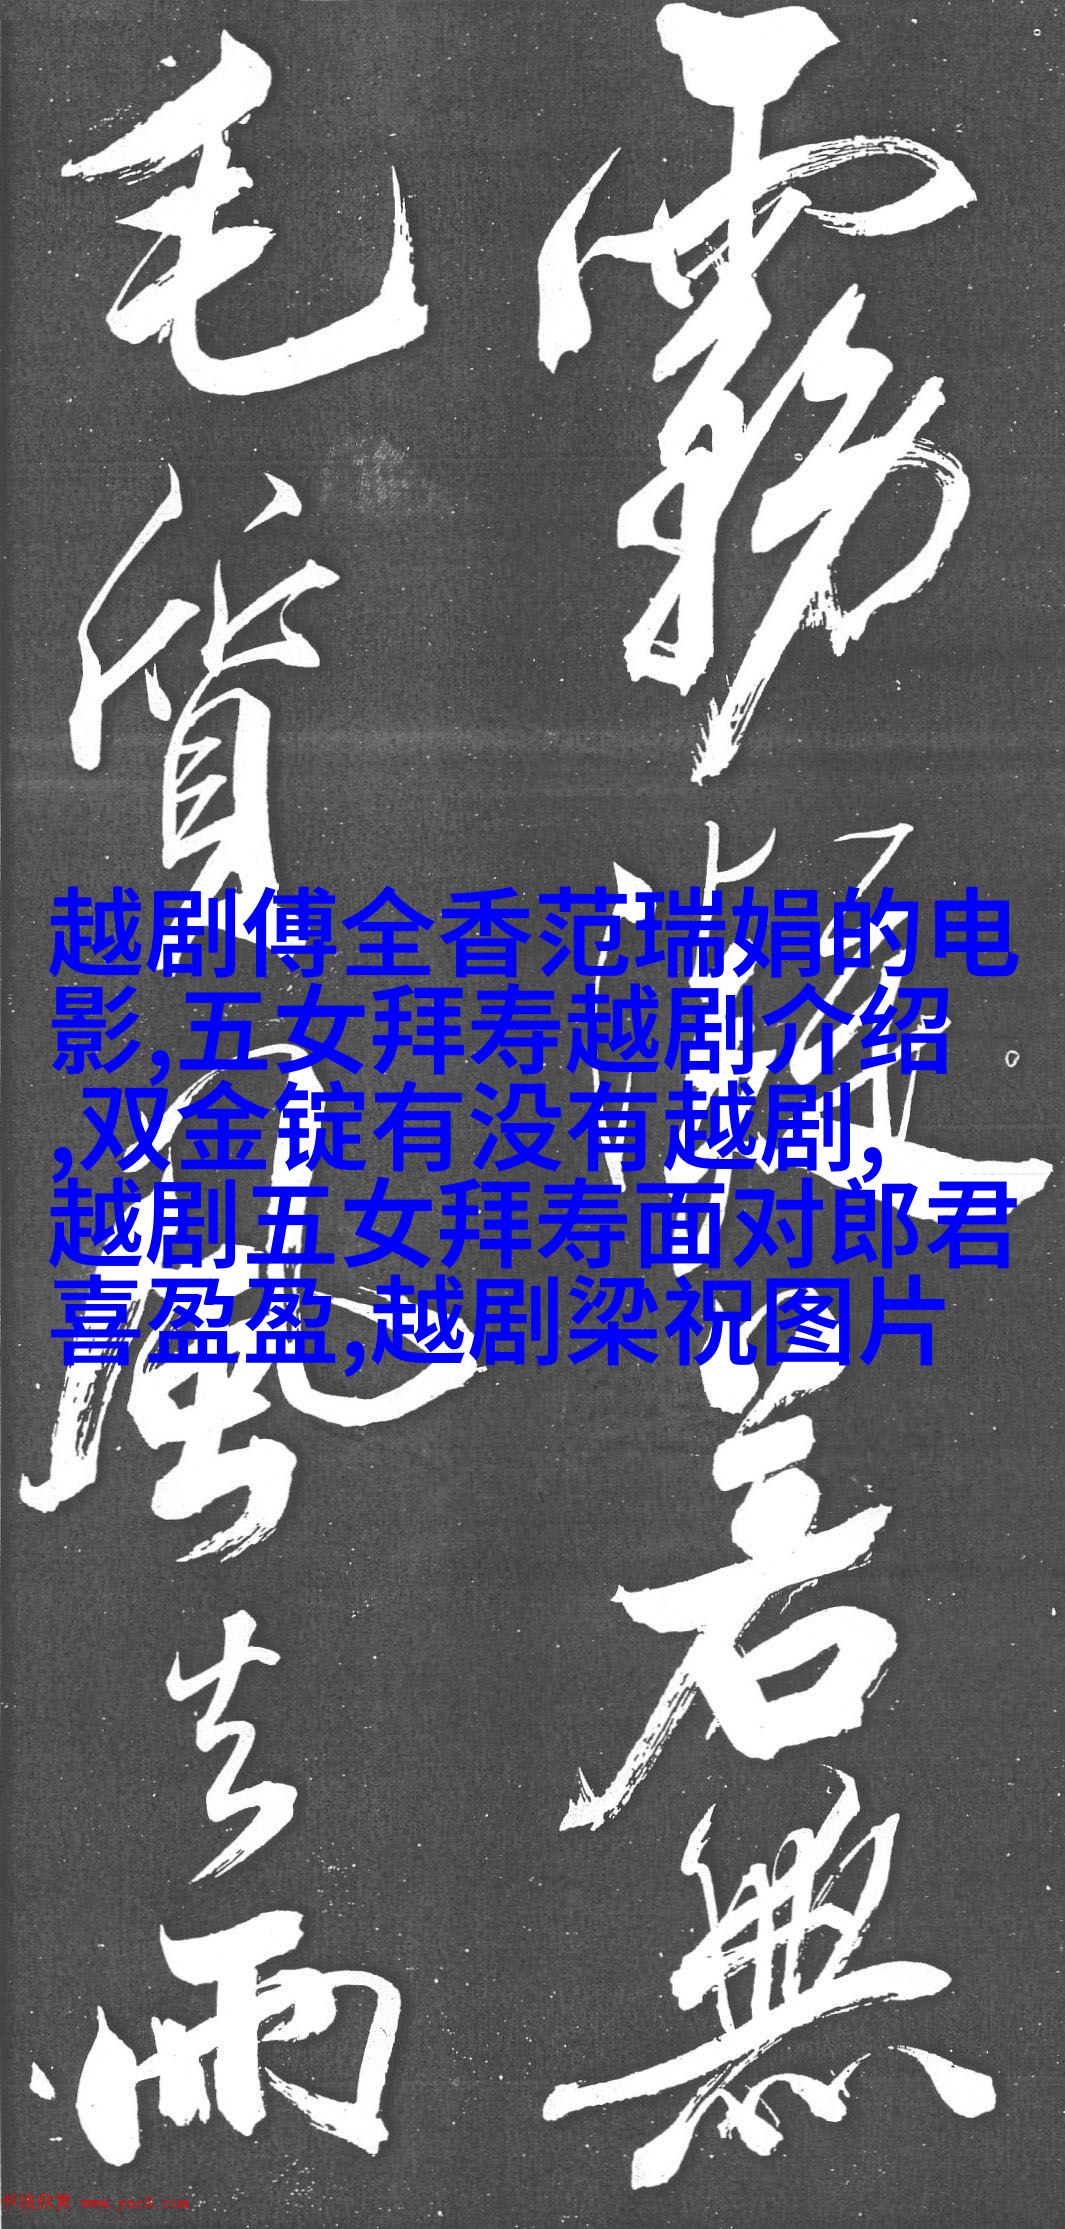 霧凝若無
毛質風去雨
越剧傅全香范瑞娟的电
影,五女拜寿越剧介绍
,双金锭有没有越剧,
越剧五女拜寿面对郎君
喜盈盈,越剧梁祝图片
书法欣赏 www.yac8.com